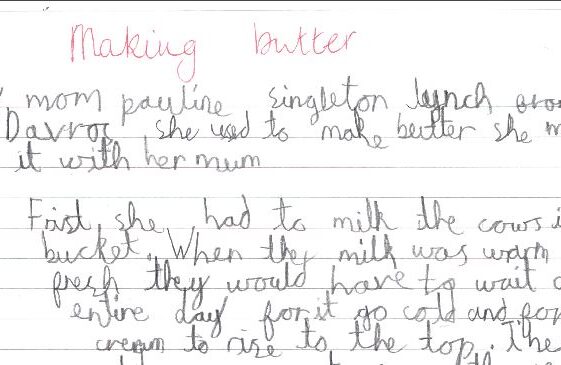 Making butter
mom pauline singleton lynch
Davros she used to make butter she m
it with her mum
First she had to milk the cows i
bucket. When they milk was warm
fresh they would have to wait a
entire day for it go cold and for
cream to rise to the top. The